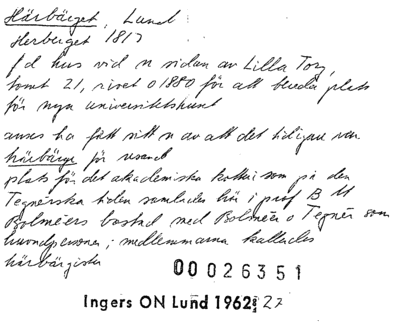 Härbärget, Lund
Herberget 1817
f d hus vid n sidan av Lilla Torg,
tomt 21, rivet o 1880 för att bereda plats
för nya universitetshuset
anses ha fått sitt n av att det tidigare var
härbärge för resande
plats för det akademiska kotteri som på den
Tegnérska tiden samlades här i prof B M
Bolmeers bostad med Bolmeer o Tegnér som
huvudpersoner; medlemmarna kallades
härbärgister
00026351
Ingers ON Lund 1962: 27